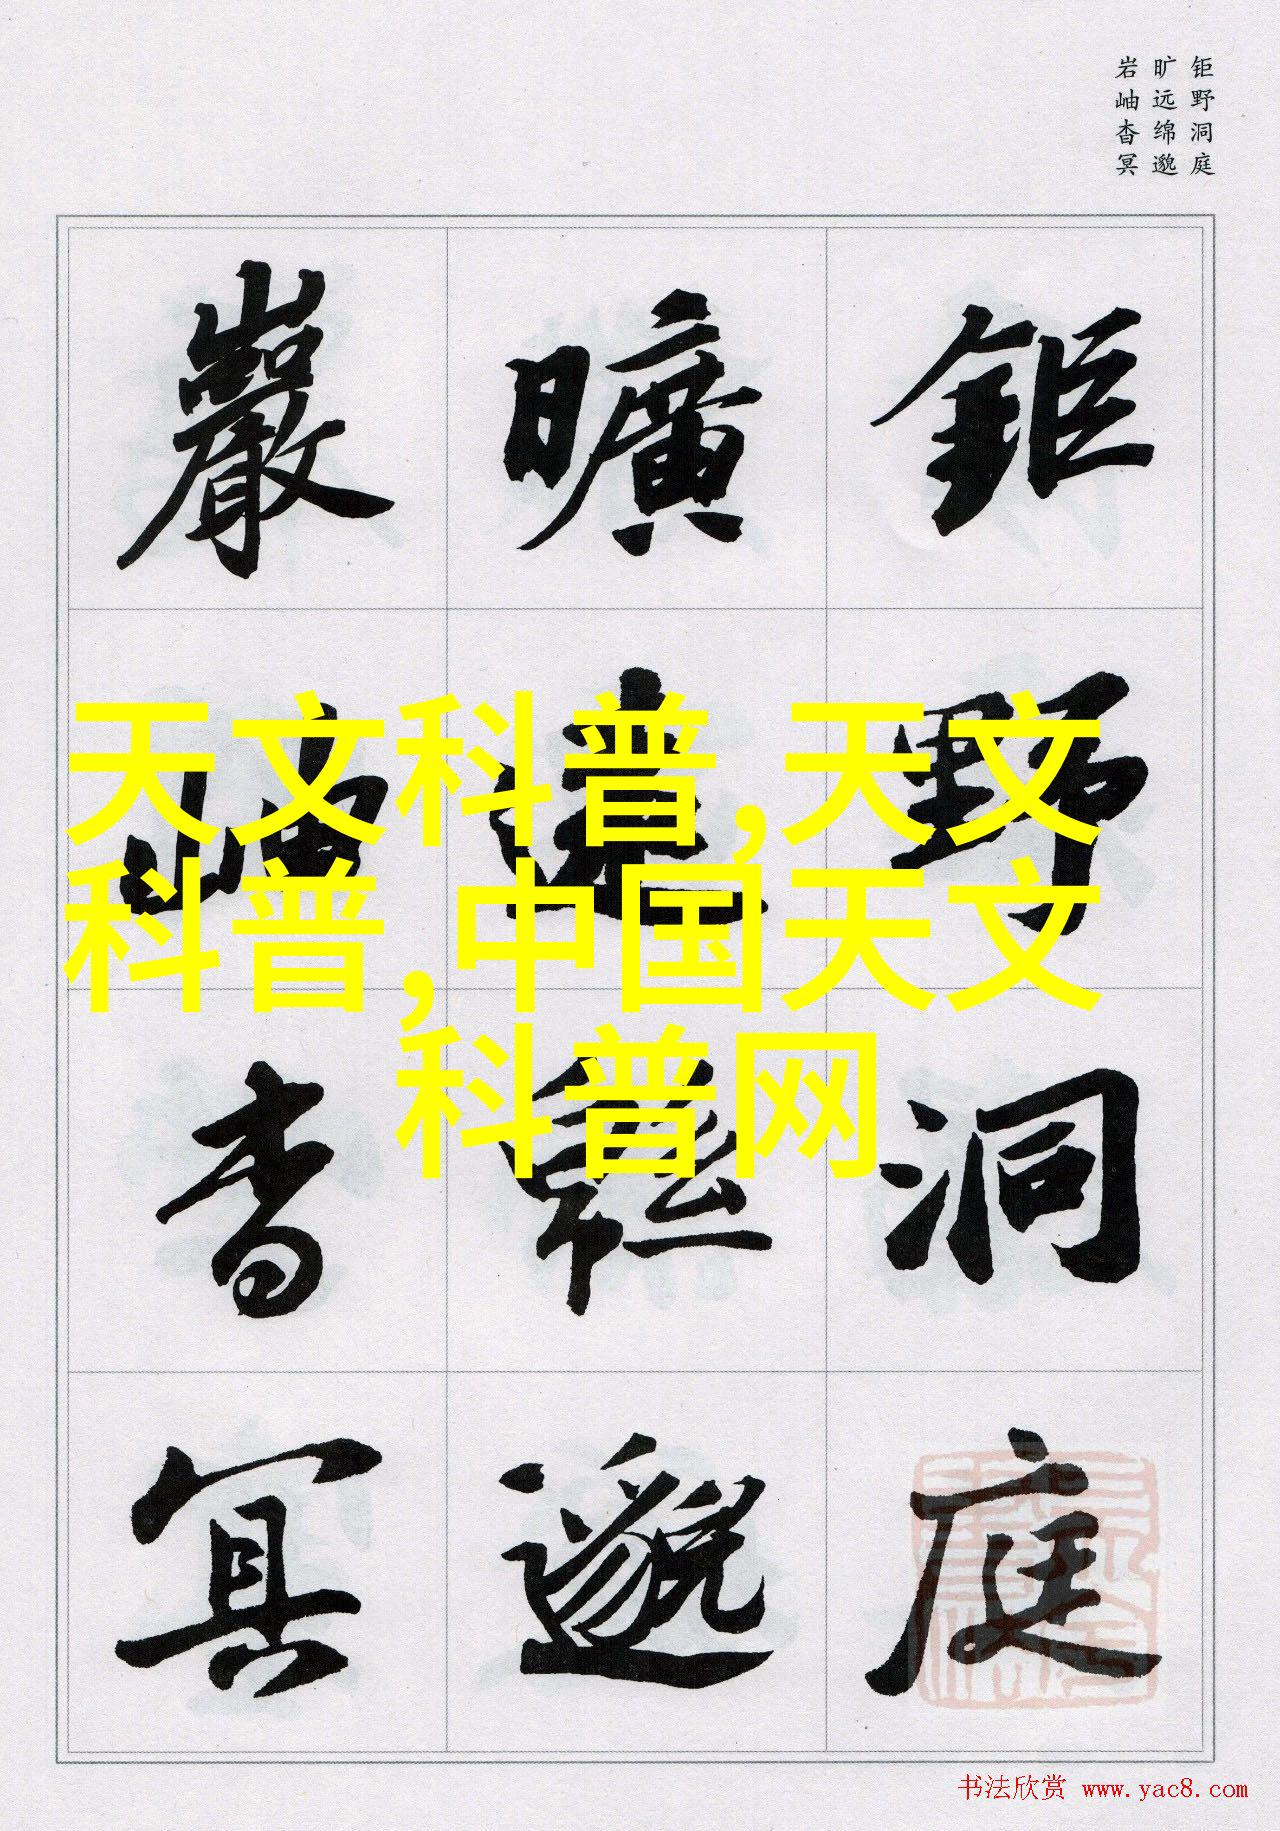 钜野洞庭
旷远绵邈
岩岫杳冥
鉅野洞庭
曠遠緜邈
巖岫杳冥
天文科普,天文
科普,中国天文
科普网
书法欣赏 www.yac8.com